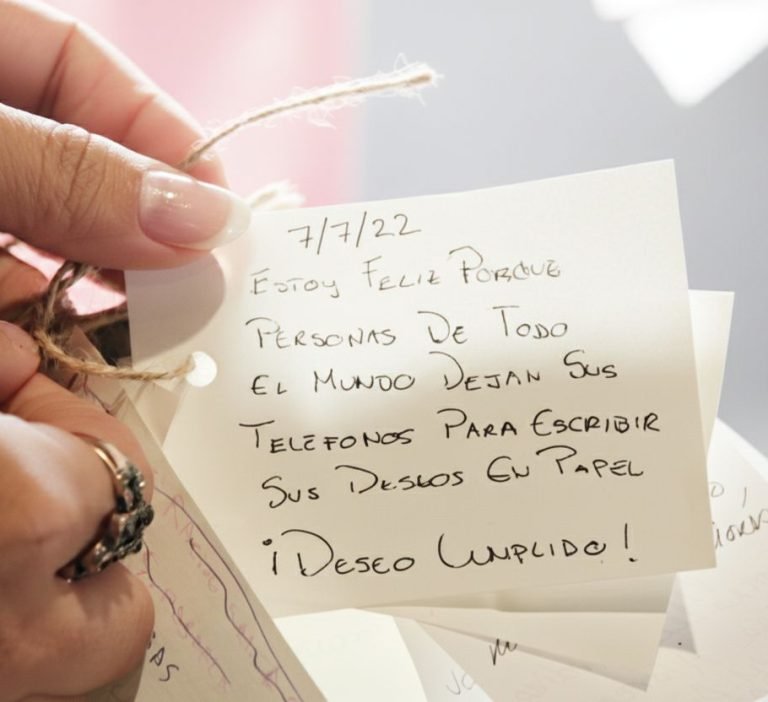 7/7/22
ESTOY FELIZ PORQUE
PERSONAS DE TODO
EL MUNDO DEJAN SUS
TELÉFONOS PARA ESCRIBIR
SUS DESEOS EN PAPEL
¡DESEO CUMPLIDO!